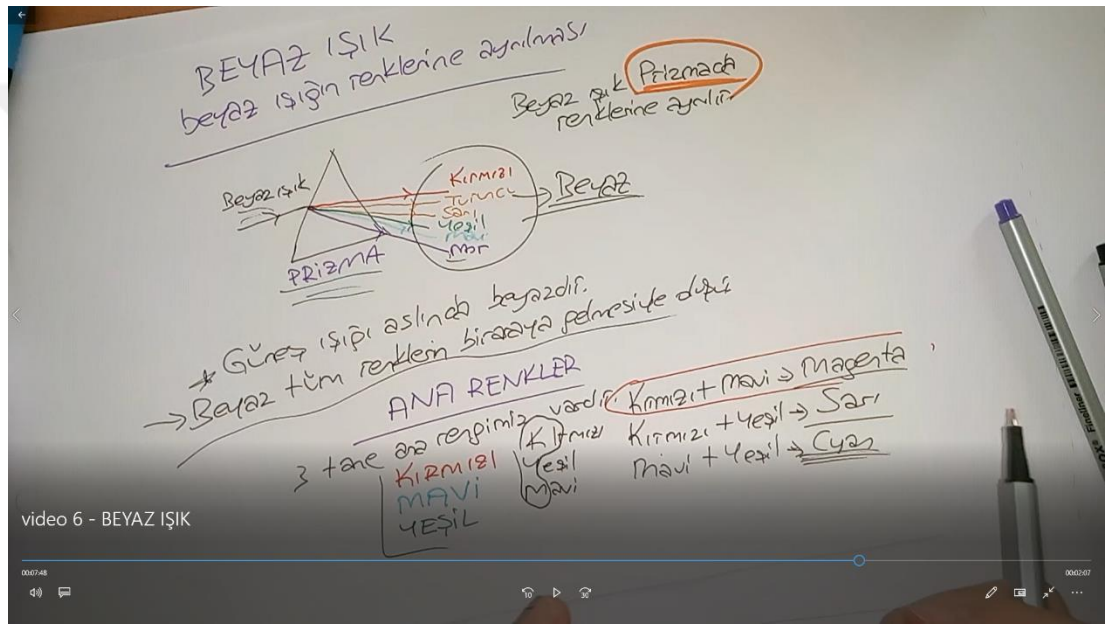 BEYAZ IŞIK
beyaz ışığın renklerine ayrılması
Beyaz ışık Prizmada
renklerine ayrılır.
Beyaz ışık
Kırmızı
Turuncu
Sarı
Yeşil
Mavi
Mor
→ Beyaz
PRİZMA
* Güneş ışığı aslında beyazdır.
→ Beyaz tüm renklerin biraraya gelmesiyle
ANA RENKLER
3 tane ana rengimiz vardır.
KIRMIZI
MAVİ
YEŞİL
Kırmızı
Yeşil
Mavi
Kırmızı + Mavi → Magenta
Kırmızı + Yeşil → Sarı
Mavi + Yeşil → Cyan
Fineliner
video 6 - BEYAZ IŞIK
00:07:48
00:02:07
10
30